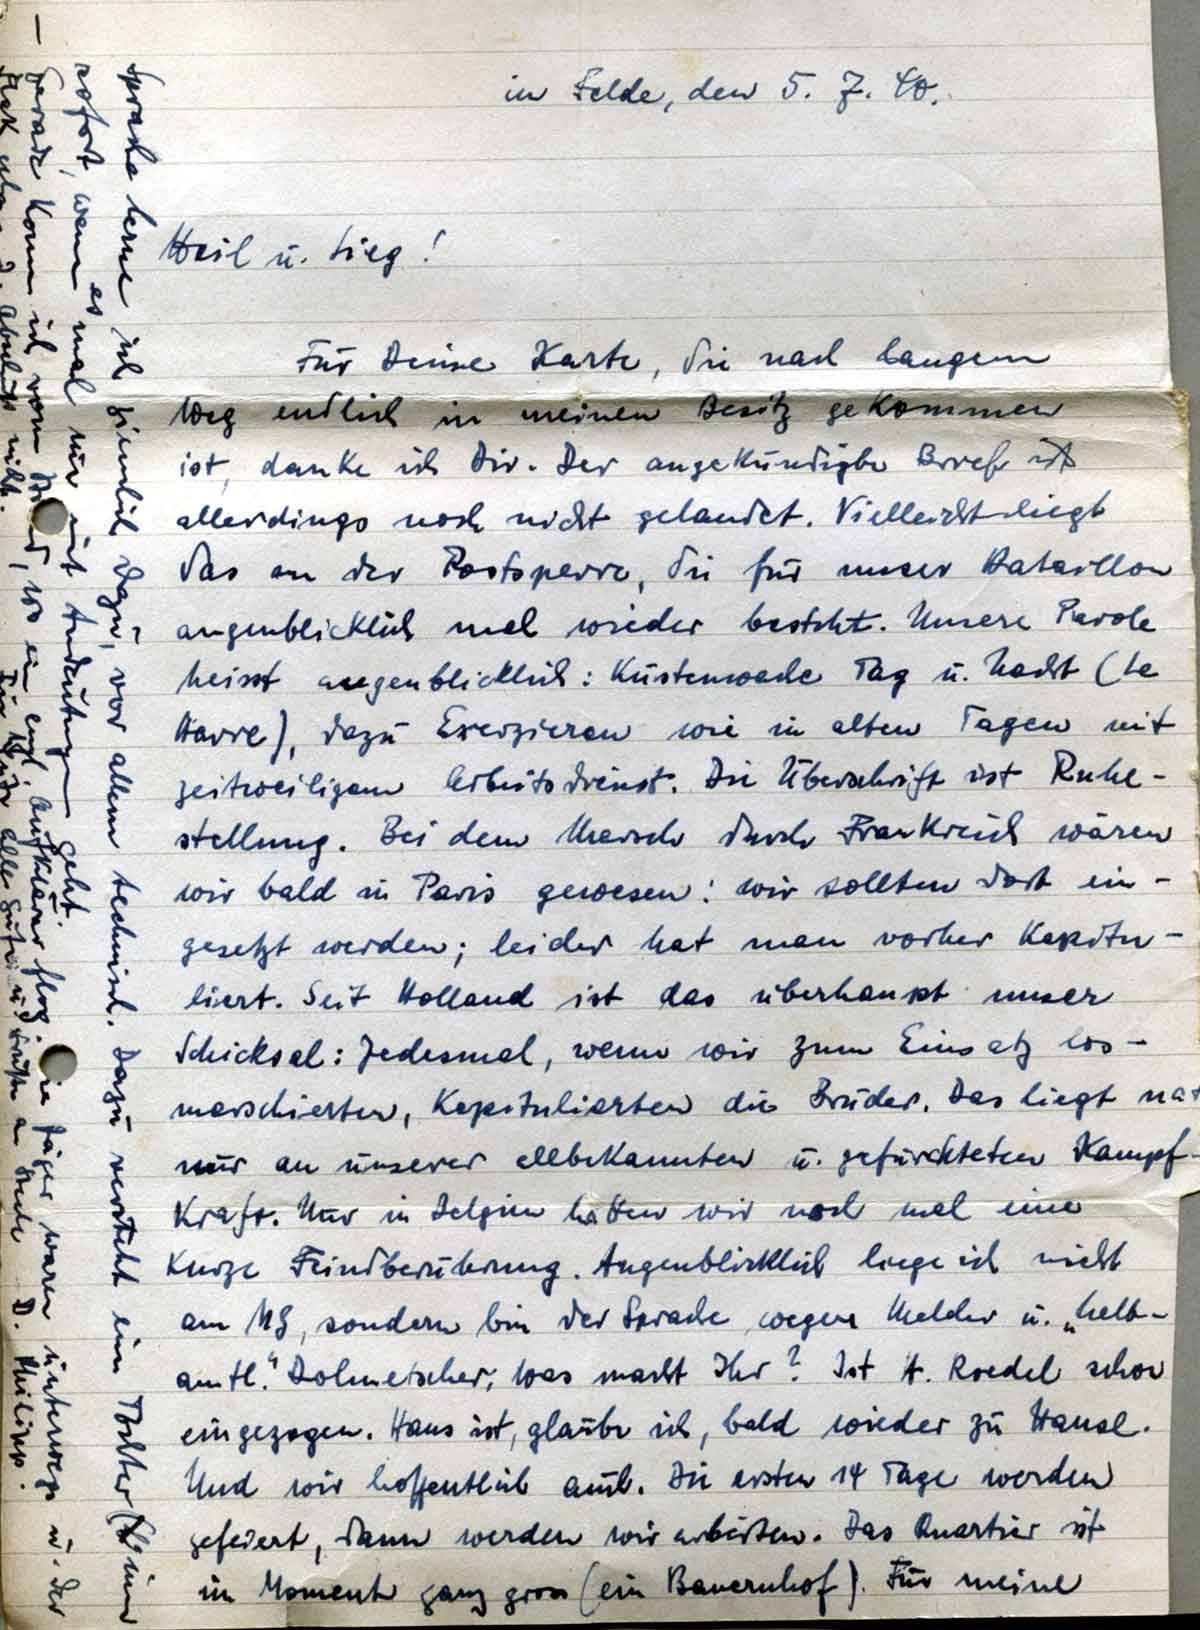 im Felde, den 5. 7. 40.
Heil u. Sieg!
Für Deine Karte, die nach langem
Weg endlich in meinen Besitz gekommen
ist, danke ich Dir. Der angekündigte Brief ist
allerdings noch nicht gelandet. Vielleicht liegt
das an der Postsperre, die für unser Bataillon
augenblicklich mal wieder besteht. Unsere Parole
heisst augenblicklich: Küstenwache Tag u. Nacht (Le
Havre), dazu Exerzieren wie in alten Tagen mit
zeitweiligem Arbeitsdienst. Die Überschrift ist Ruhe-
stellung. Bei dem Marsch durch Frankreich wären
wir bald in Paris gewesen: wir sollten dort ein-
gesetzt werden; leider hat man vorher kapitu-
liert. Seit Holland ist das überhaupt unser
Schicksal: Jedesmal, wenn wir zum Einsatz los-
marschierten, kapitulierten die Brüder. Das liegt nat
nur an unserer allbekannten u. gefürchteten Kampf-
kraft. Nur in Belgien hatten wir noch mal eine
kurze Feindberührung. Augenblicklich liege ich nicht
am MG, sondern bin der Sprache wegen Melder u. „halb-
amtl." Dolmetscher. Was macht Ihr? Ist H. Roedel schon
eingezogen. Hans ist, glaube ich, bald wieder zu Hause.
Und wir hoffentlich auch. Die ersten 14 Tage werden
gefeiert, dann werden wir arbeiten. Das Quartier ist
im Moment ganz gross (ein Bauernhof). Für meine
Sprache lerne ich ziemlich dazu, vor allem technisch. Dazu versteht eine Tochter
sofort, wenn es mal nur mit Andeutungen geht.
– Gerade komm ich vom, wo ein engl. Aufklärer flog. Jäger waren unterwegs u. der
Flak nicht.
Für heute alle guten u. Grüsse an D. Philipp.